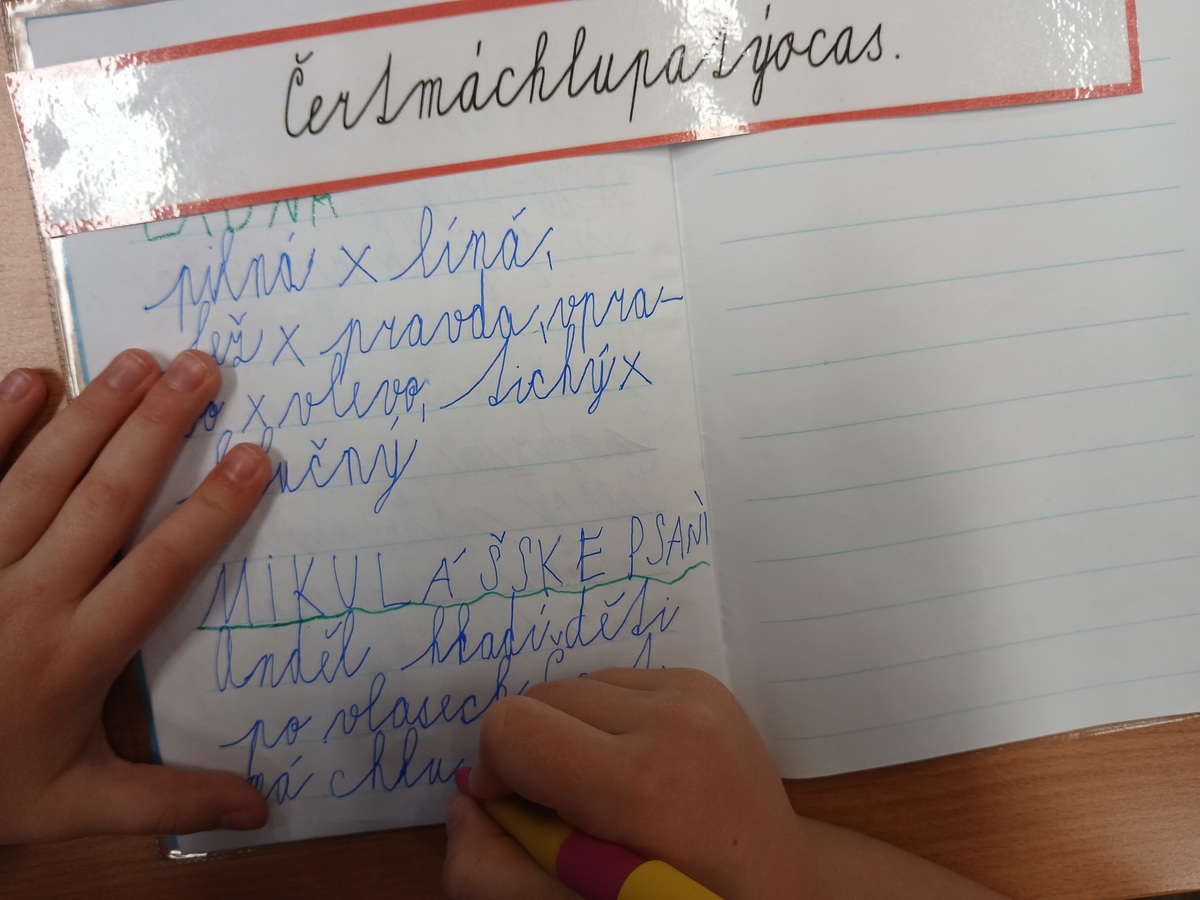 Čertmáchlupatýocas.
pilná x líná,
lež x pravda, vpra-
vo x vlevo, tichý x
hlučný
MIKULÁŠSKE PSANÌ
Anděl hladí děti
po vlasech.
má chlu